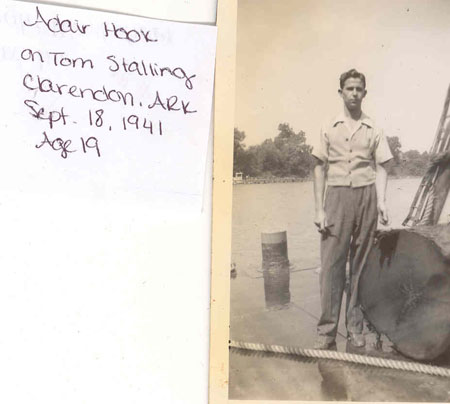 Adair Hook
on Tom Stalling
Clarendon, ARK
Sept. 18, 1941
Age 19